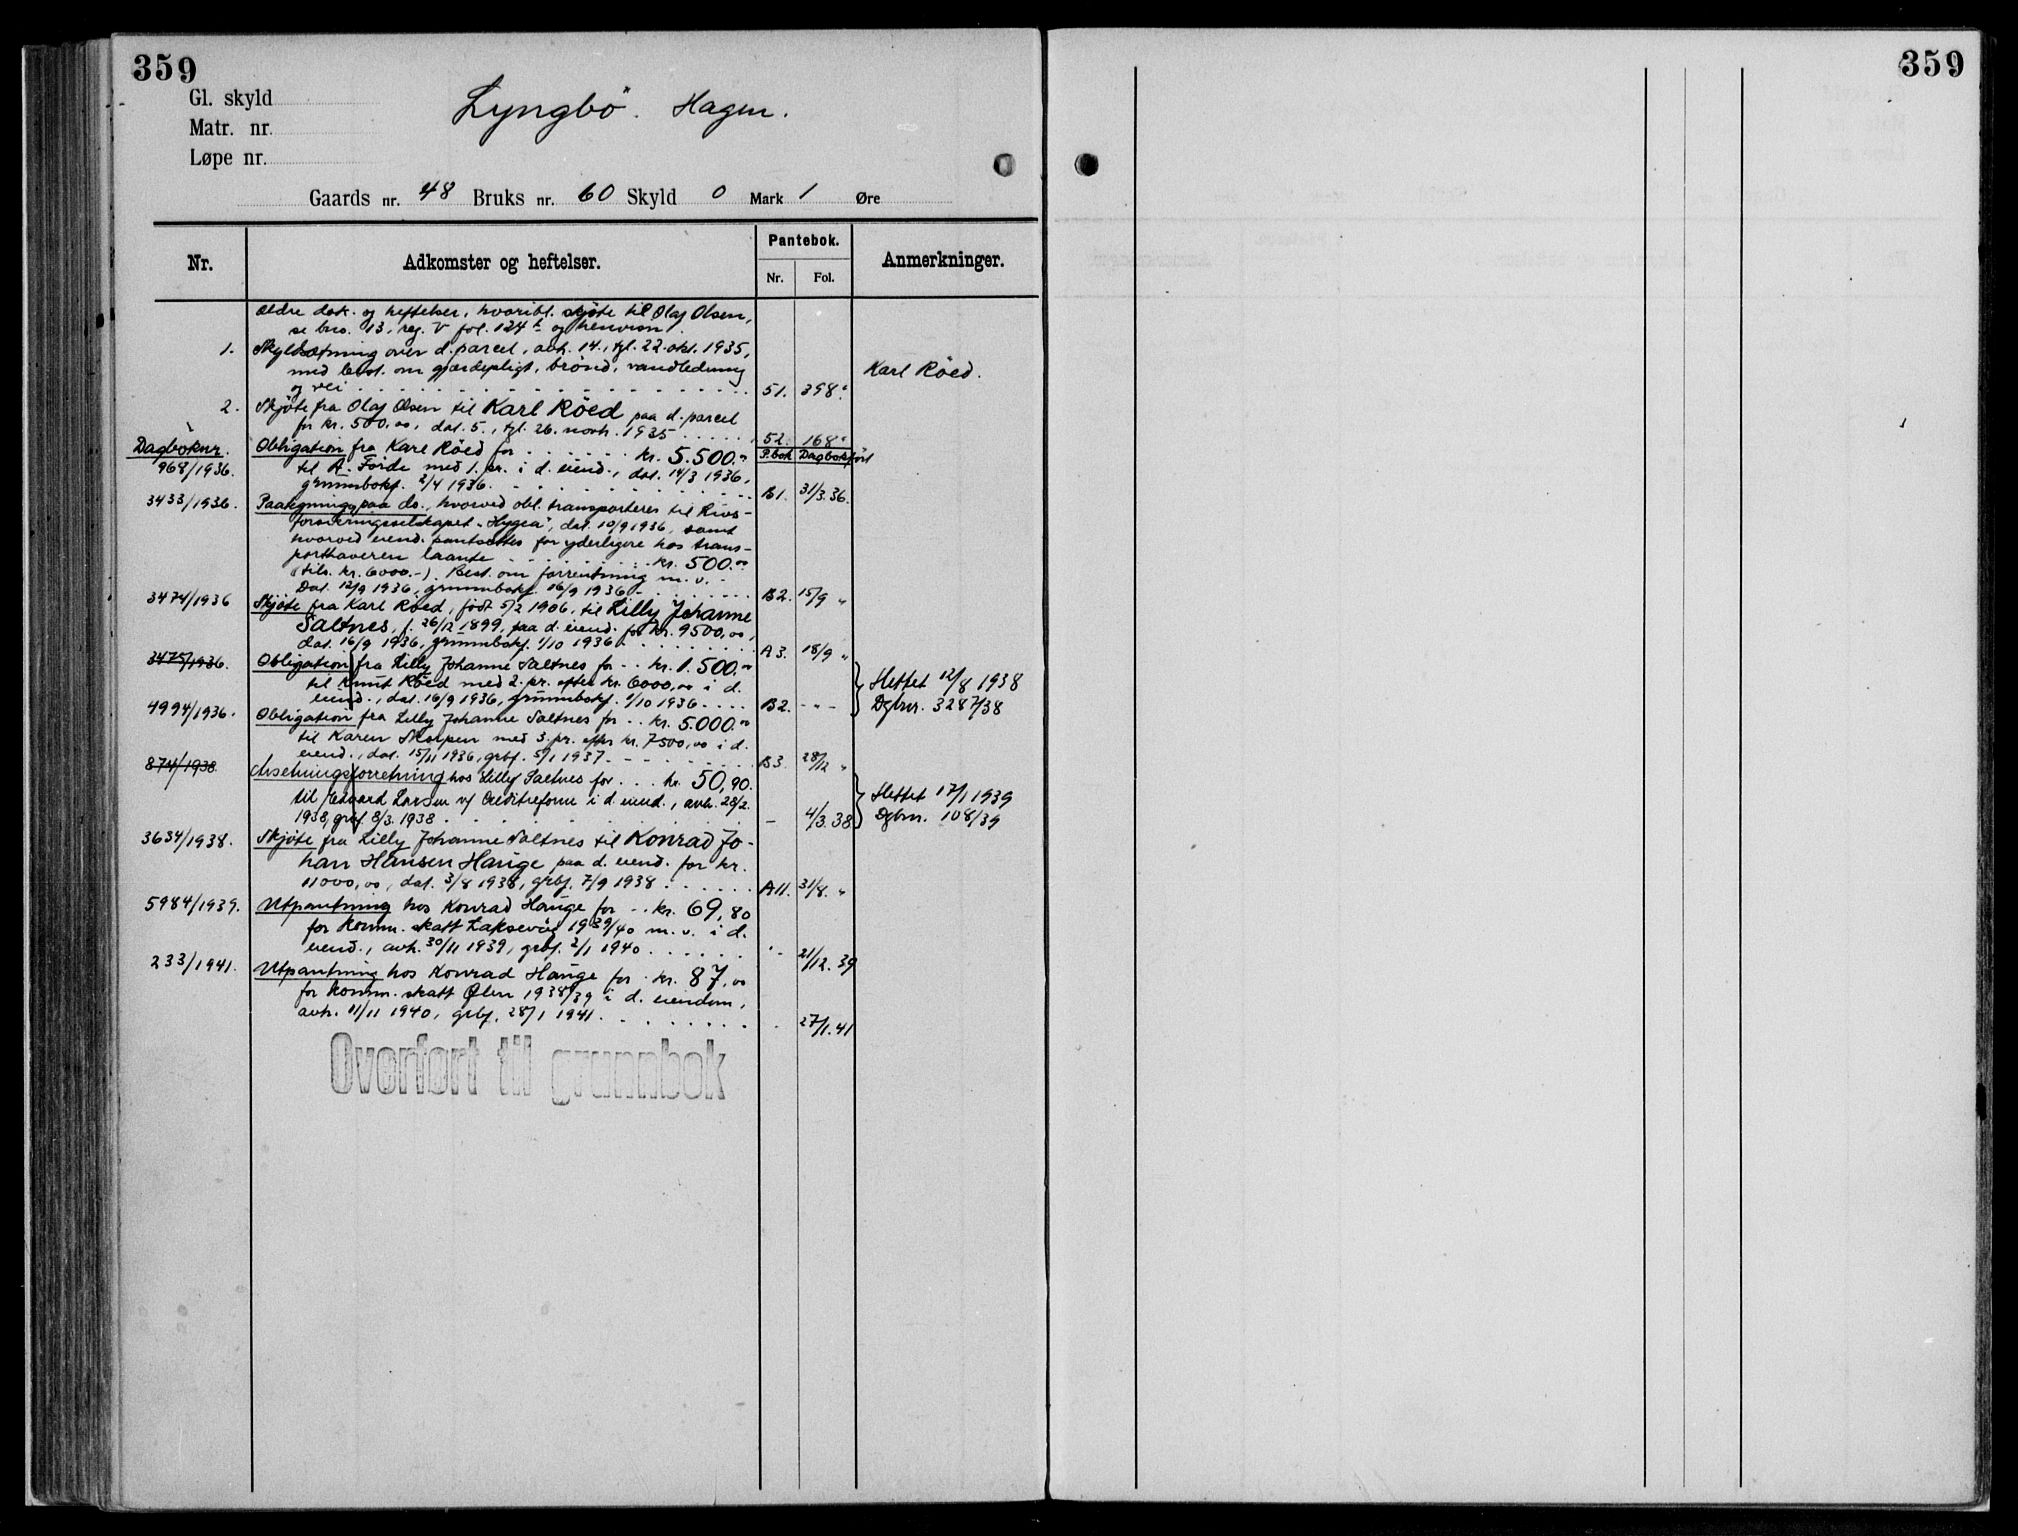 359
359
Gl. skyld
Matr. nr.
Løpe nr.
Lyngbö. Hagen.
Gaards nr. 48 Bruks nr. 60 Skyld 0 Mark 1 Øre
Nr.
Adkomster og heftelser.
Pantebok.
Nr. Fol.
Anmerkninger.
Ældre dok. og heftelser, hvoribl. skjöte til Olaj Olsen,
se bno. 13, reg. V fol. 124 og henvisn.
1. Skyldsætning over d. parcel, avh. 14., tgl. 22. okt. 1935,
med best. om gjærdepligt, brönd, vandledning
og vei 51. 398
Karl Röed.
2. Skjöte fra Olaj Olsen til Karl Röed paa d. parcel
for kr. 500,00, dat. 5., tgl. 26. novh. 1935 52. 168
Dagboknr. P.bok Dagbokfört
968/1936. Obligation fra Karl Röed for kr. 5.500.00
til A. Förde med 1. pr. i d. eiend., dat. 14/3 1936,
grunnbokf. 2/4 1936. B1. 31/3.36.
3433/1936. Paategning paa do., hvorved obl. transporteres til Livs-
forsikringsselskapet "Hygea", dat. 10/9 1936, samt
hvorved eiend. pantsættes for yderligere hos trans-
porthaveren laante kr. 500.00
(tils. kr. 6000.-). Best. om forrentning m.v.
Dat. 12/9 1936, grunnbokf. 16/9 1936 B2. 15/9 "
3474/1936 Skjöte fra Karl Röed, födt 5/2 1906, til Lilly Johanne
Saltnes, f. 26/12 1899, paa d. eiend. for kr. 9500,00,
dat. 16/9 1936, grunnbokf. 1/10 1936 A3. 18/9 "
3475/1936. Obligation fra Lilly Johanne Saltnes for kr. 1.500.00
til Knut Röed med 2. pr. efter kr. 6000,00 i d.
eiend., dat. 16/9 1936, grunnbokf. 1/10 1936 B2. - " -
Slettet 12/8 1938
Dgbnr. 3287/38
4994/1936. Obligation fra Lilly Johanne Saltnes for kr. 5.000.00
til Karen Skorpen med 3. pr. efter kr. 7500,00 i d.
eiend., dat. 15/11 1936, grbf. 5/1 1937. B3. 28/12 "
874/1938 Utsetningsforretning hos Lilly Saltnes for kr. 50,90.
til Edvard Larsen v/ Creditreform i d. eiend., avh. 28/2.
1938, grbf. 8/3. 1938 - 4/3.38
Slettet 17/1 1939
Dgbnr. 108/39
3634/1938. Skjöte fra Lilly Johanne Saltnes til Konrad Jo-
han Hansen Hauge paa d. eiend. for kr.
11000,00, dat. 3/8 1938, grbf. 7/9 1938 A11. 31/8. "
5984/1939. Utpantning hos Konrad Hauge for kr. 69,80
for komm. skatt Laksevåg 1939/40 m.v. i d.
eiend., avh. 30/11 1939, grbf. 2/1 1940 - 21/12.39
233/1941. Utpantning hos Konrad Hauge for kr. 87,00
for komm. skatt Ølen 1938/39 i d. eiendom,
avh. 11/11 1940, grbf. 28/1 1941. - 27/1.41
Overført til grunnbok